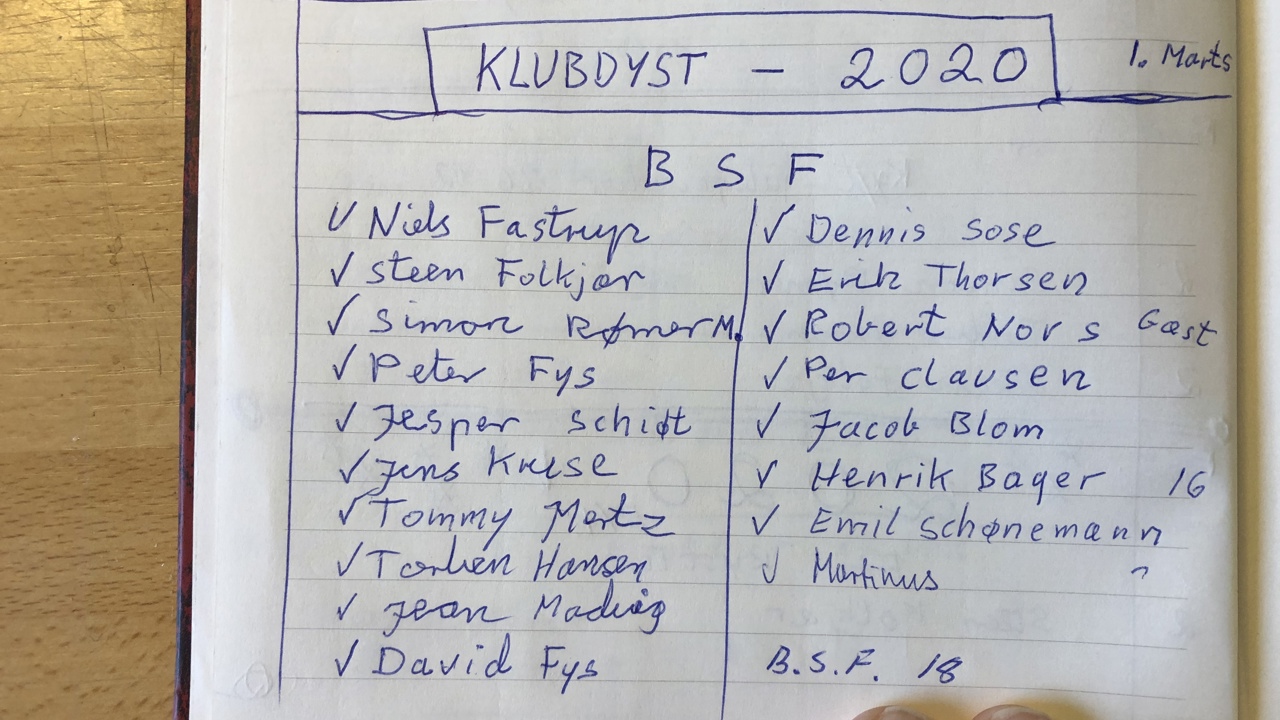 KLUBDYST - 2020 1. Marts
B S F
✓ Niels Fastrup
✓ Steen Folkjær
✓ Simon Rømer M.
✓ Peter Fys
✓ Jesper Schiøt
✓ Jens Kruse
✓ Tommy Mertz
✓ Torben Hansen
✓ Jean Madvig
✓ David Fys
✓ Dennis Sose
✓ Erik Thorsen
✓ Robert Nors Gæst
✓ Per Clausen
✓ Jacob Blom
✓ Henrik Bager 16
✓ Emil Schønemann
✓ Martinus "
B.S.F. 18